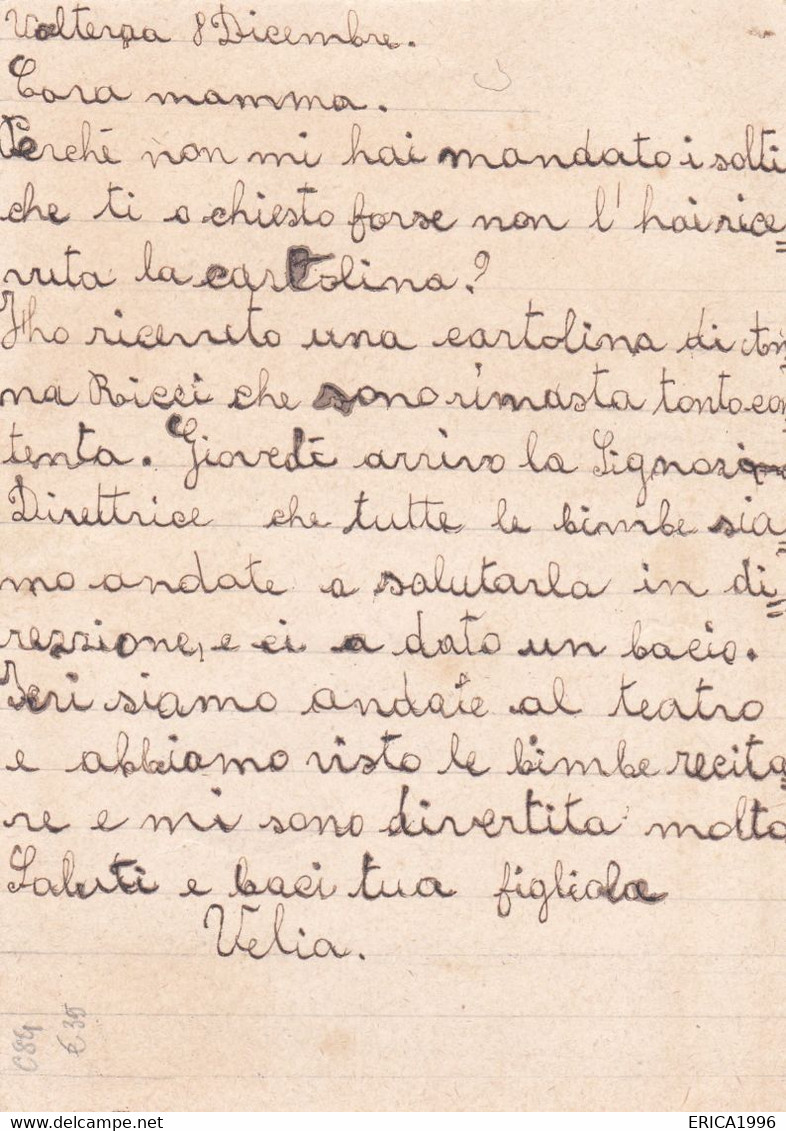 Volterra 8 Dicembre.
Cara mamma.
Perchè non mi hai mandato i solti
che ti o chiesto forse non l'hai rice=
vuta la cartolina?
Iho ricevuto una cartolina di An=
na Ricci che sono rimasta tanto con
tenta. Giovedì arrivo la Signora
Direttrice che tutte le bimbe sia=
mo andate a salutarla in di=
rezzione, e ci a dato un bacio.
Ieri siamo andate al teatro
e abbiamo visto le bimbe recita=
re e mi sono divertita molto
Saluti e baci tua figliola
Velia.
C84
€ 35
ERICA1996